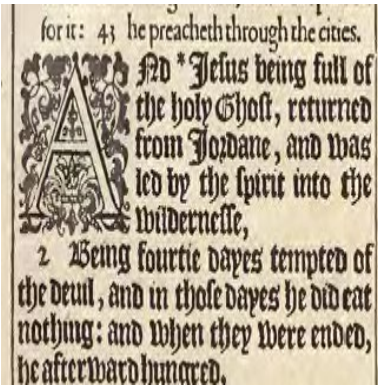 for it: 43 he preacheth through the cities.
AND * Jesus being full of
the holy Ghost, returned
from Jordane, and was
led by the spirit into the
wildernesse,
2 Being fourtie dayes tempted of
the deuil, and in those dayes he did eat
nothing: and when they were ended,
he afterward hungred.